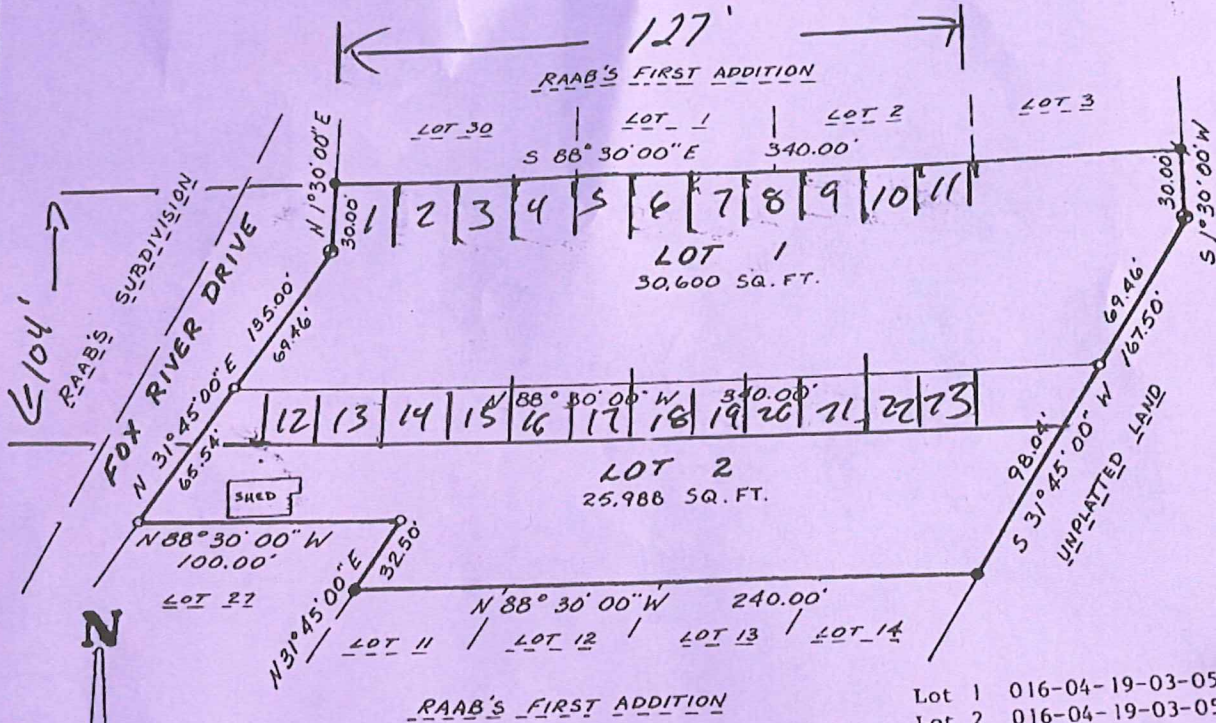 127'
RAAB'S FIRST ADDITION
LOT 30
LOT 1
LOT 2
LOT 3
S 88° 30' 00" E 340.00'
N 1° 30' 00" E
30.00'
30.00'
S 1° 30' 00" W
1 2 3 4 5 6 7 8 9 10 11
LOT 1
30,600 SQ. FT.
104'
RAAB'S SUBDIVISION
FOX RIVER DRIVE
N 31° 45' 00" E 135.00'
69.46'
65.54'
69.46'
S 31° 45' 00" W 167.50'
98.04'
UNPLATTED LAND
N 88° 30' 00" W 340.00'
12 13 14 15 16 17 18 19 20 21 22 23
LOT 2
25,988 SQ. FT.
SHED
N 88° 30' 00" W
100.00'
LOT 27
32.50'
N 31° 45' 00" E
N 88° 30' 00" W 240.00'
LOT 11
LOT 12
LOT 13
LOT 14
N
RAAB'S FIRST ADDITION
Lot 1 016-04-19-03-05
Lot 2 016-04-19-03-05